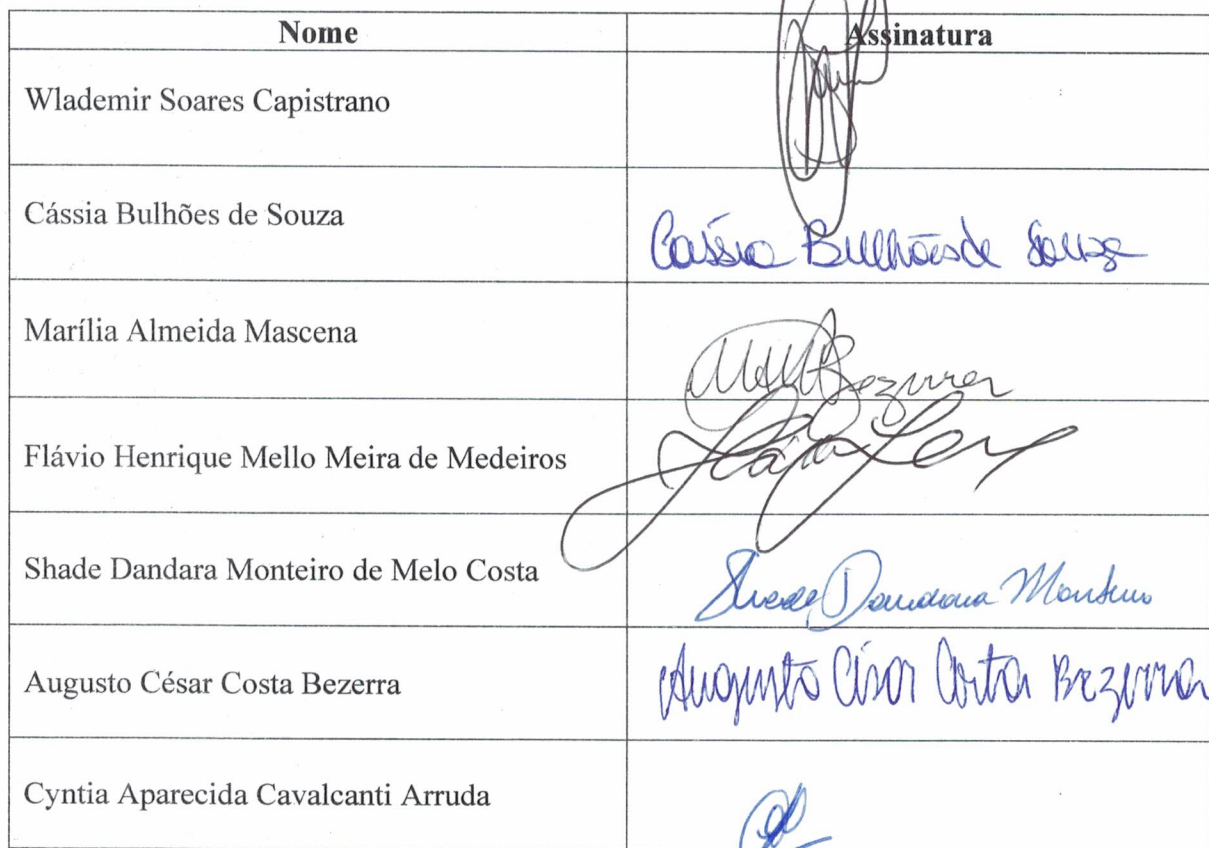 Nome Assinatura
Wlademir Soares Capistrano
Cássia Bulhões de Souza Cássia Bulhões de Souza
Marília Almeida Mascena Bezerra
Flávio Henrique Mello Meira de Medeiros
Shade Dandara Monteiro de Melo Costa Shade Dandara Monteiro
Augusto César Costa Bezerra Augusto César Costa Bezerra
Cyntia Aparecida Cavalcanti Arruda